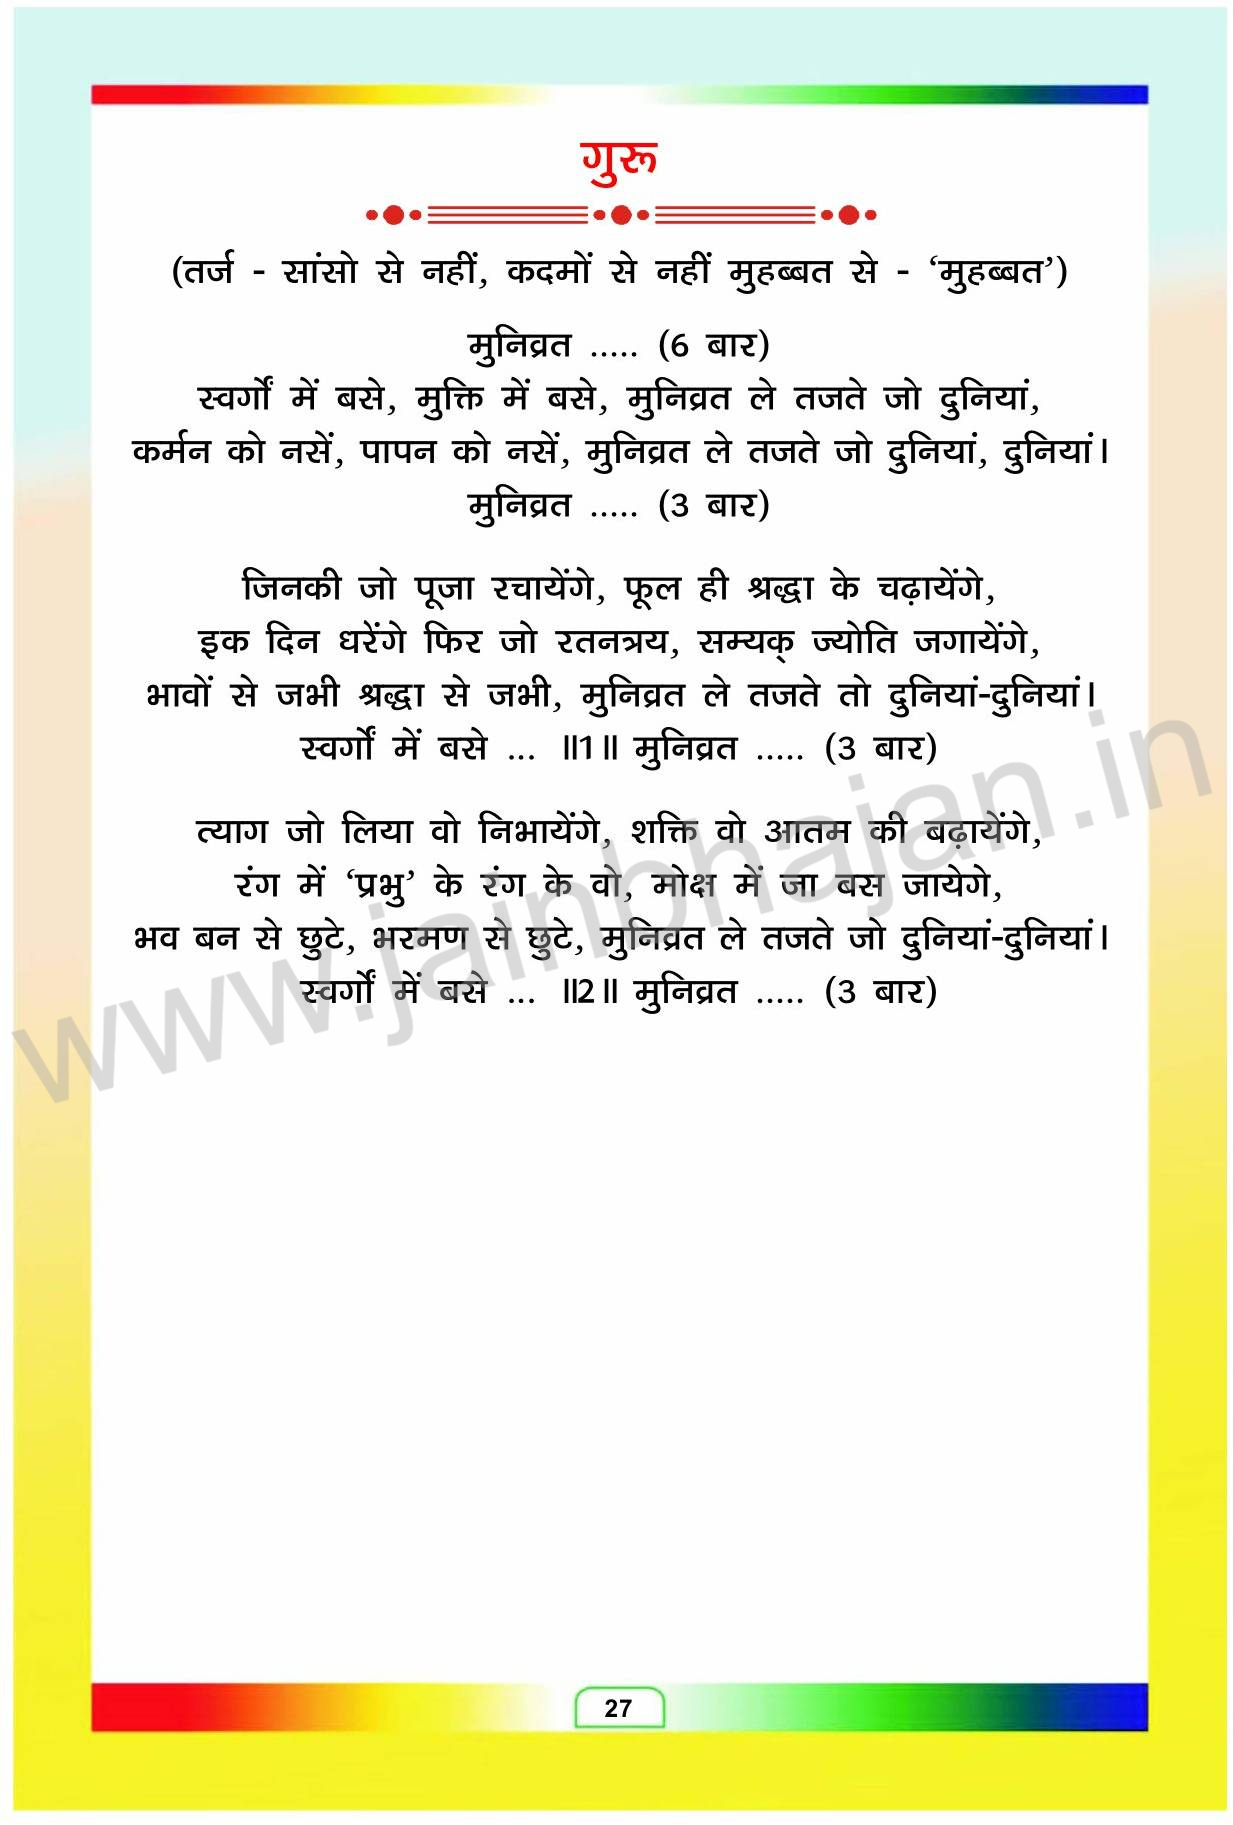 गुरू
(तर्ज - सांसो से नहीं, कदमों से नहीं मुहब्बत से - ‘मुहब्बत’)
मुनिव्रत ..... (6 बार)
स्वर्गों में बसे, मुक्ति में बसे, मुनिव्रत ले तजते जो दुनियां,
कर्मन को नसें, पापन को नसें, मुनिव्रत ले तजते जो दुनियां, दुनियां।
मुनिव्रत ..... (3 बार)
जिनकी जो पूजा रचायेंगे, फूल ही श्रद्धा के चढ़ायेंगे,
इक दिन धरेंगे फिर जो रतनत्रय, सम्यक् ज्योति जगायेंगे,
भावों से जभी श्रद्धा से जभी, मुनिव्रत ले तजते तो दुनियां-दुनियां।
स्वर्गों में बसे ... ॥1॥ मुनिव्रत ..... (3 बार)
त्याग जो लिया वो निभायेंगे, शक्ति वो आतम की बढ़ायेंगे,
रंग में ‘प्रभु’ के रंग के वो, मोक्ष में जा बस जायेगे,
भव बन से छुटे, भरमण से छुटे, मुनिव्रत ले तजते जो दुनियां-दुनियां।
स्वर्गों में बसे ... ॥2॥ मुनिव्रत ..... (3 बार)
www.jainbhajan.in
27